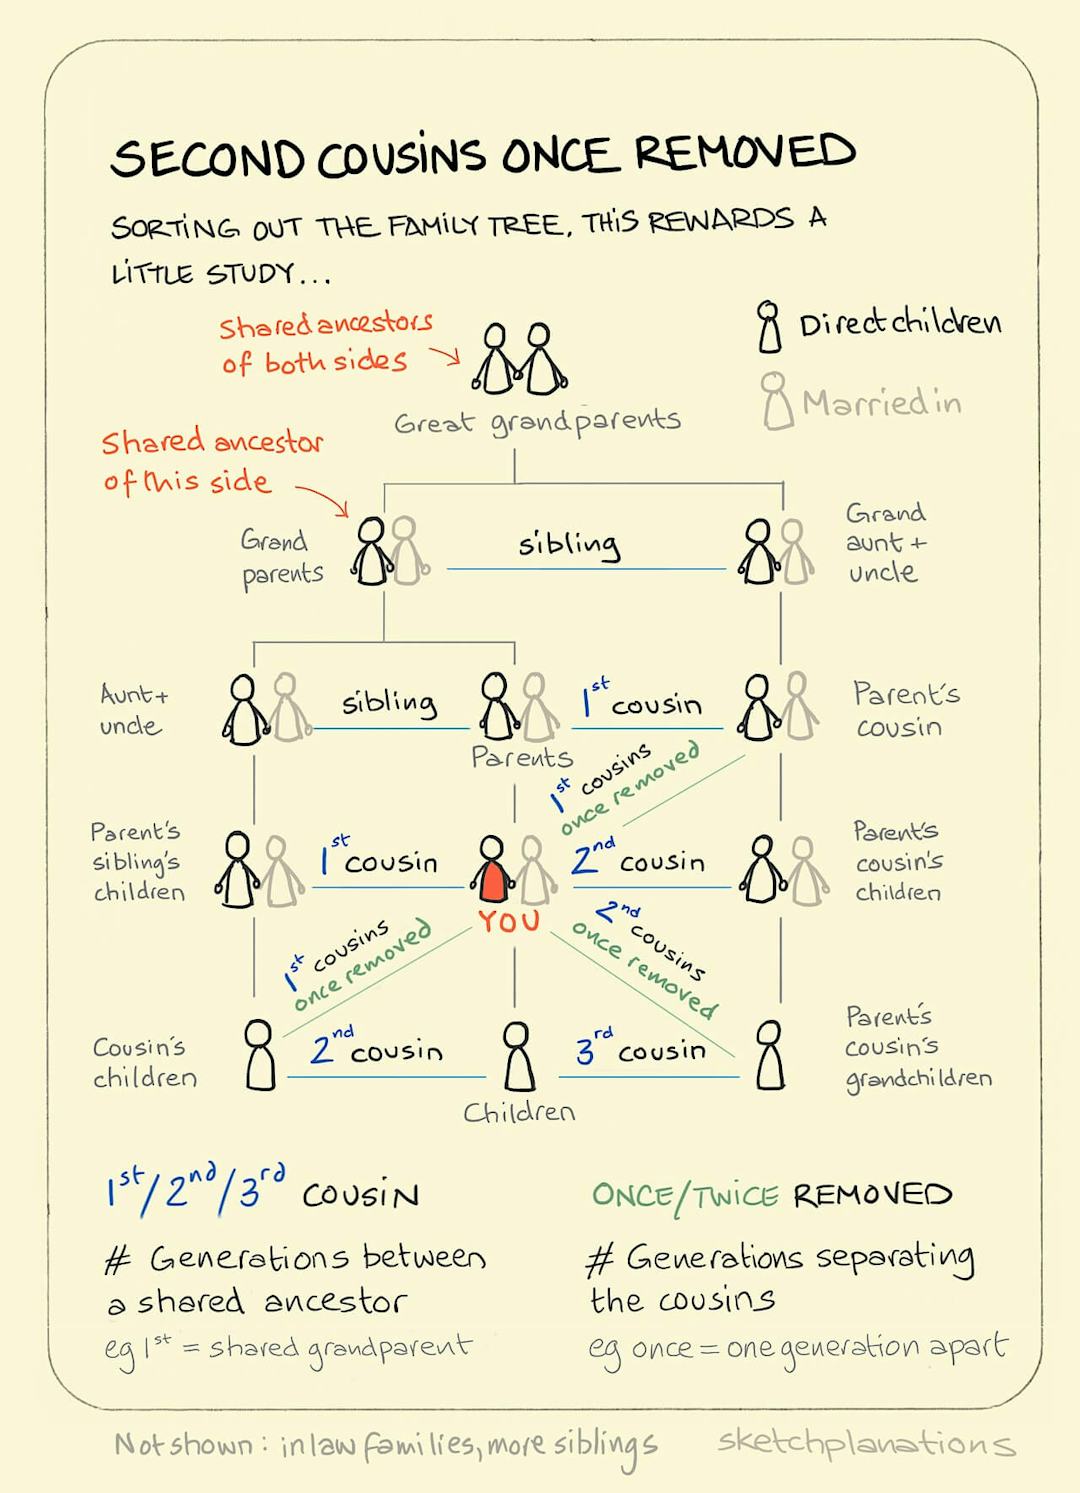 SECOND COUSINS ONCE REMOVED
SORTING OUT THE FAMILY TREE, THIS REWARDS A
LITTLE STUDY...
Shared ancestors
of both sides
Direct children
Married in
Great grandparents
Shared ancestor
of this side
Grand
parents
sibling
Grand
aunt +
uncle
Aunt+
uncle
sibling
Parents
1st cousin
Parent's
cousin
1st cousins
once removed
Parent's
sibling's
children
1st cousin
YOU
2nd cousin
Parent's
cousin's
children
1st cousins
once removed
2nd cousins
once removed
Cousin's
children
2nd cousin
Children
3rd cousin
Parent's
cousin's
grandchildren
1st/2nd/3rd COUSIN
# Generations between
a shared ancestor
eg 1st = shared grandparent
ONCE/TWICE REMOVED
# Generations separating
the cousins
eg once = one generation apart
Not shown: in law families, more siblings
sketchplanations